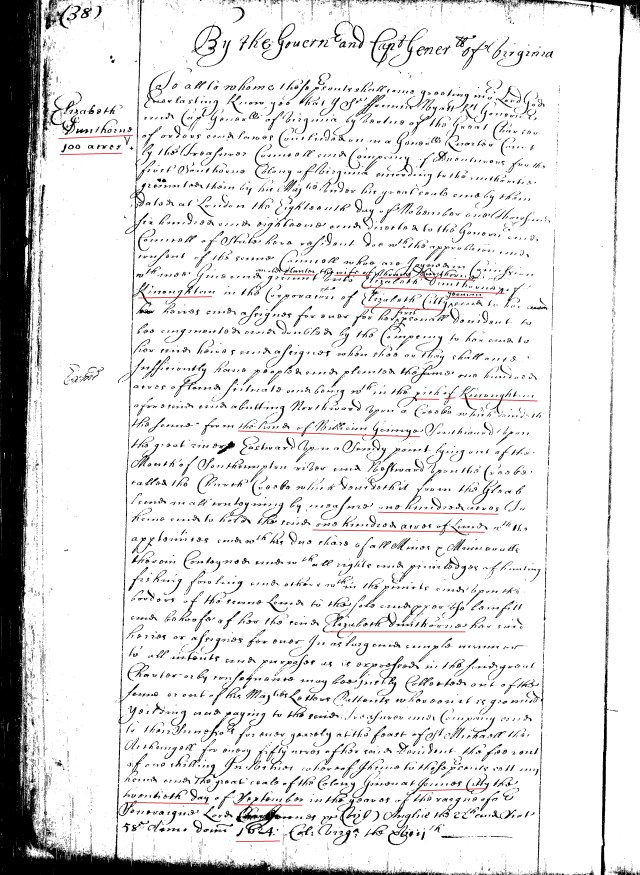 (38)
By the Govern^r and Capt Gener^ll of Virginia
Elizabeth
Dunthorne
100 acres
To all to whome these pr̃ents shall come greeting in o^r Lord God
Everlasting Know yee that I S^r Francis Wyatt K^t Governor
and Capt Generall of Virginia by vertue of the Great Charter
of orders and lawes Constituted in a Generall Quarter Court
by the Treasurer Councell and Company of Adventurers for the
first Southerne Colony of Virginia according to the authoritie
graunted them by his Ma^tie under his great seale and by them
dated at London the Eighteenth day of November one thousand
six hundred and eighteene and directed to the Governor and
Councell of State here resident doe w^th the approbation and
consent of the same Councell who are Joyned in Comission
w^th mee Give and graunt unto Elizabeth Dunthorne of
planter the wife of Dunthorne
Kicoughtan in the Corporation of Elizabeth Citty yeoman to her and
her heires and assignes for ever for her first devident to
bee augmented and doubled by the Company to her and to
her said heires and assignes when shee or they shall once
sufficiently have peopled and planted the same one hundred
acres of land scituate and being w^th in the of Kicoughtan
aforesaid and abutting Northward upon a Creeke which the
the same from the land of William Southward upon
the great river Eastward upon a Sandy point lying out of the
Mouth of Southampton river and Westward upon the Creeke
called the Church Creeke which devideth it from the Gleab
land in all contayning by measure one hundred acres To
have and to hold the said one hundred acres of Land w^th the
apptences and w^th his due share of all Mines & Mineralls
therein Contayned and w^th all rights and priviledges of hunting
fishing fowling and others w^th in the precincts and upon the
borders of the same Land to the sole and pper use benifitt
and behoofe of her the said Elizabeth Dunthorne her said
heires or assignes for ever In as large and ample manner
to all intents and purposes as is expressed in the said great
Charter or by consequence may bee justly Collected out of the
same or out of his Ma^ties Letters Pattents whereon it is grounded
Yeilding and paying to the said Treasurer and Company and
to their Successo^rs for ever yearely at the feast of S^t Michaell the
Archangell for every fifty acres of her said devident the fee rent
of one shilling In witnes whereof I have to these pr̃ents sett my
hand and the great seale of the Colony Given at James Citty the
twentieth day of September in the yeares of the raigne of o^r
Soveraigne Lord James Anglie the 22^th and Scot
58^th Anno domi^ 1624: Col: Virg^a the